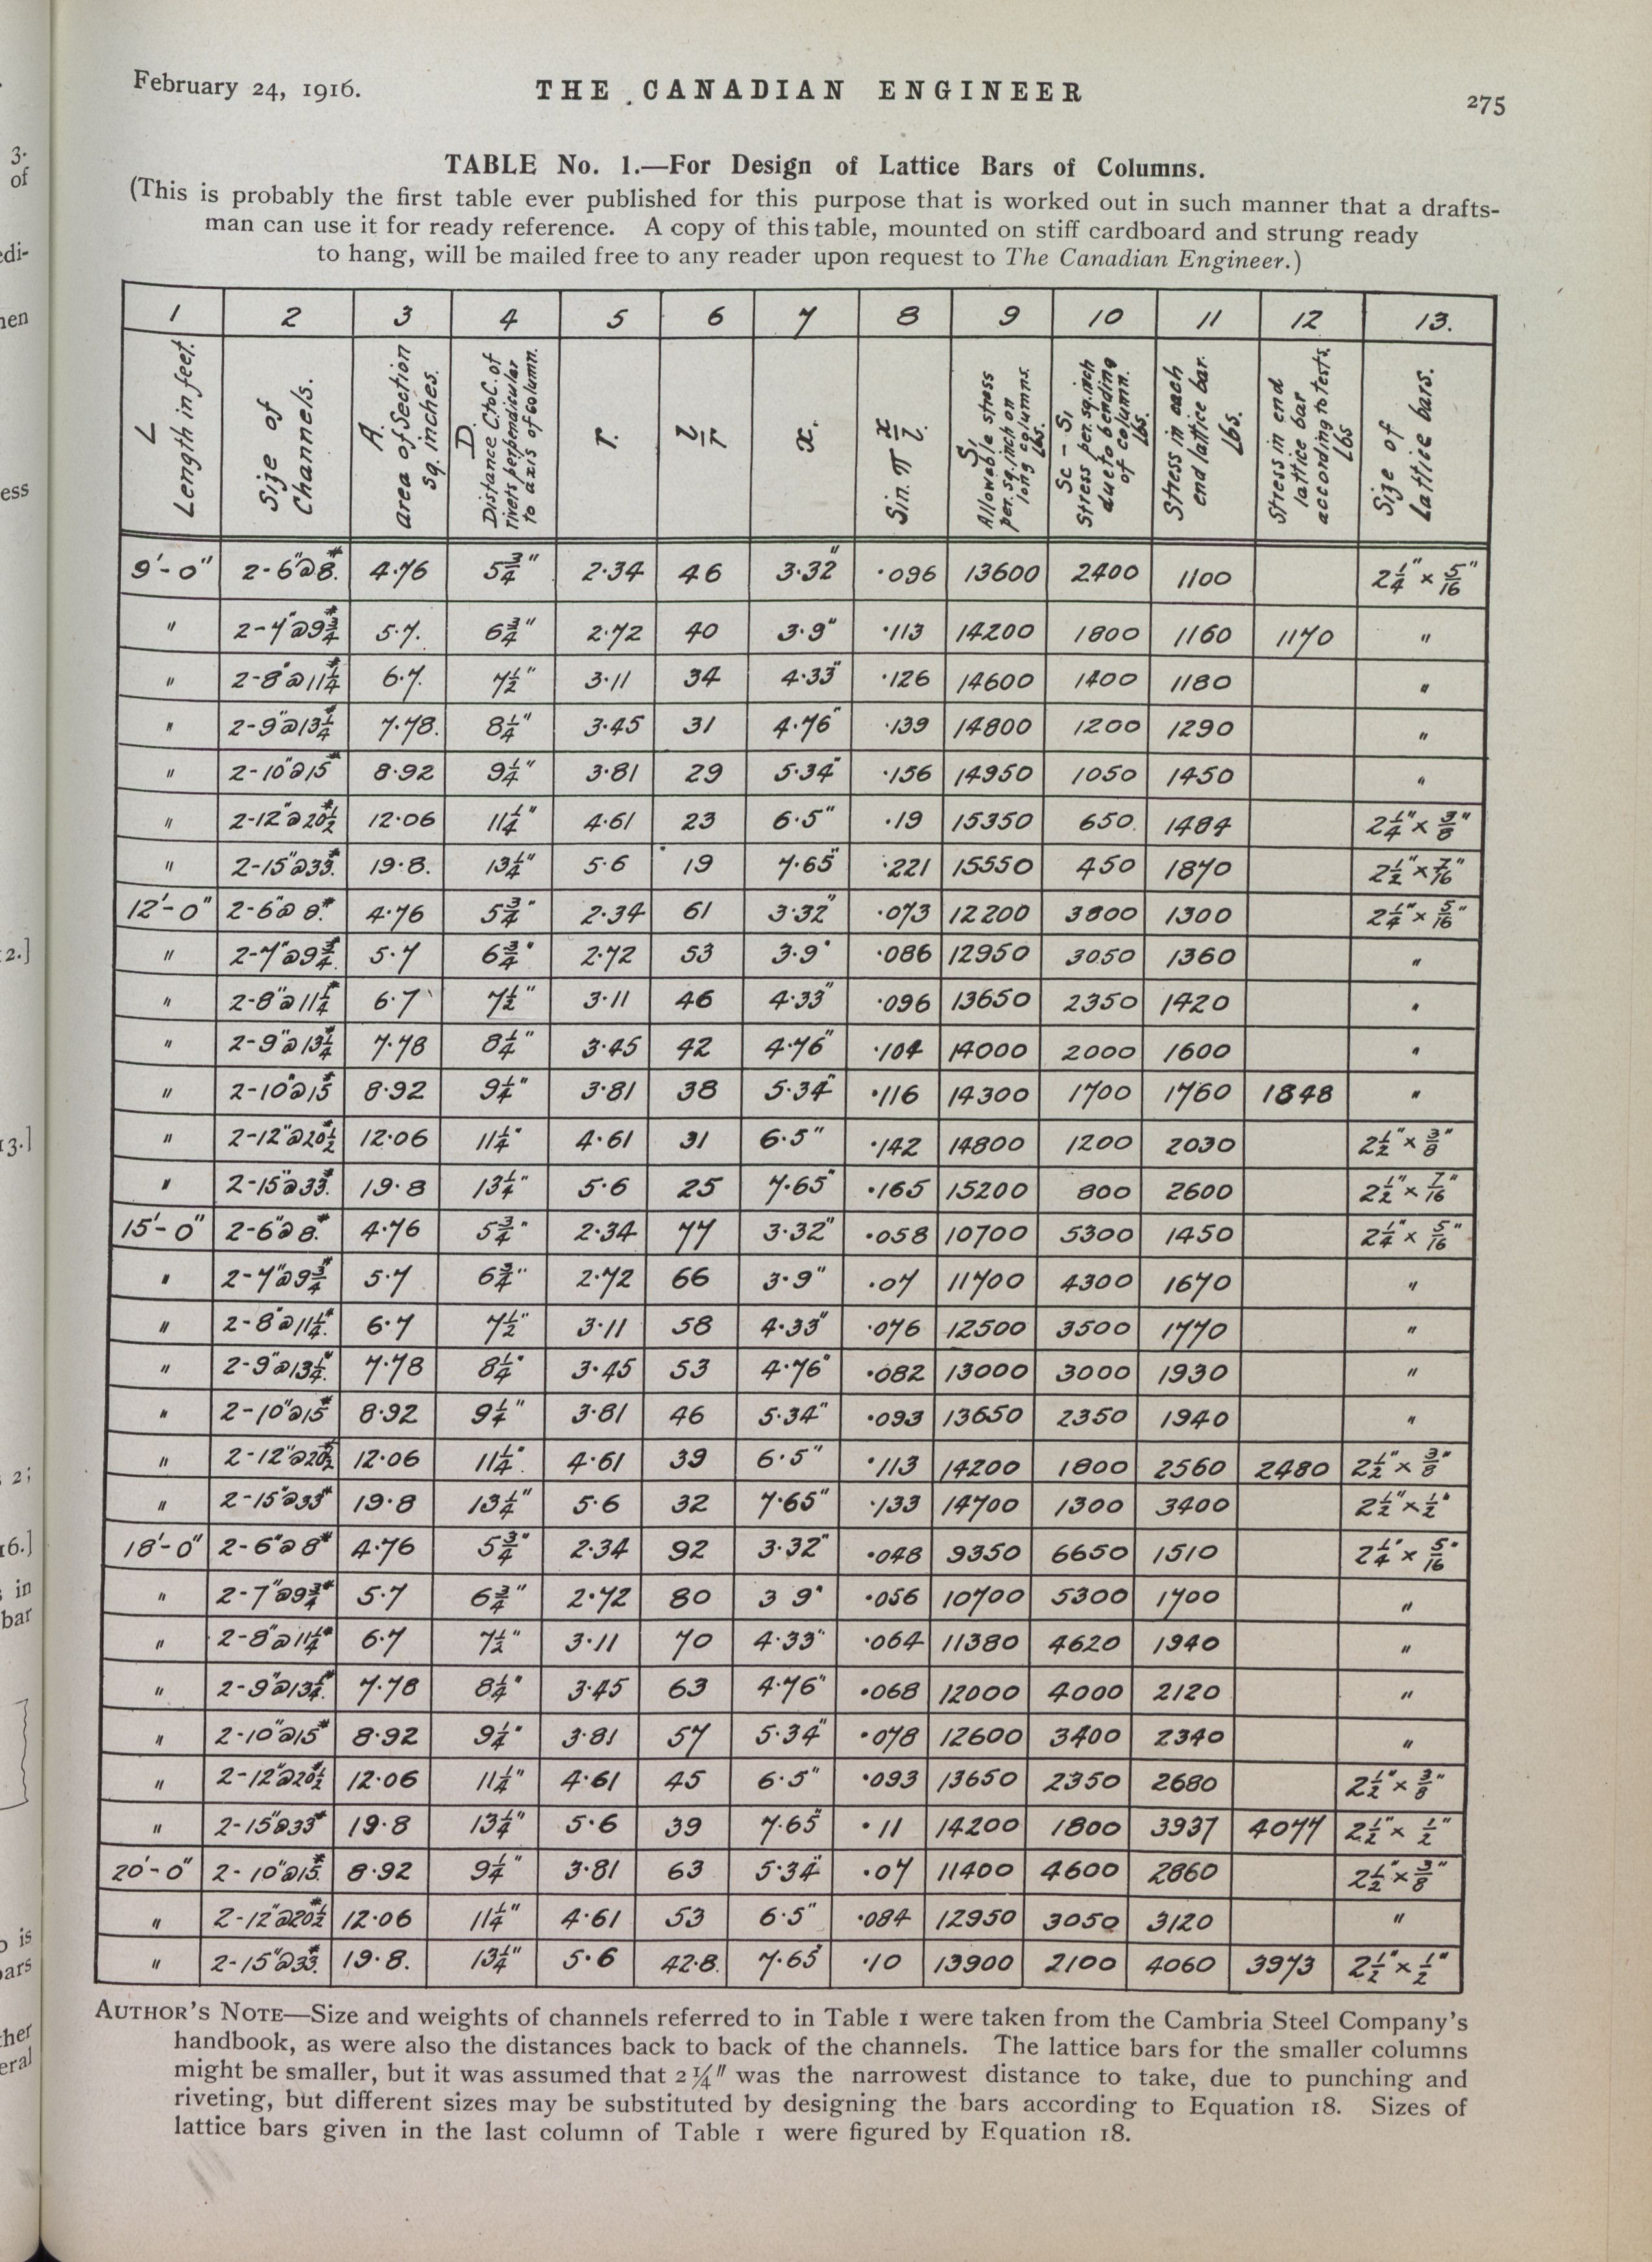 February 24, 1916. THE CANADIAN ENGINEER 275
TABLE No. 1.—For Design of Lattice Bars of Columns.
(This is probably the first table ever published for this purpose that is worked out in such manner that a drafts-
man can use it for ready reference. A copy of this table, mounted on stiff cardboard and strung ready
to hang, will be mailed free to any reader upon request to The Canadian Engineer.)
1 2 3 4 5 6 7 8 9 10 11 12 13.
L Length in feet. Size of Channels. A. area of Section sq. inches. D. Distance C.to C. of rivets perpendicular to axis of column. r. l/r x. Sin. π x/l. S, Allowable stress per. sq. inch on long columns. lbs. Sc - S, Stress per. sq. inch due to bending of column. lbs. Stress in each end lattice bar. Lbs. Stress in end lattice bar according to tests. Lbs Size of Lattice bars.
9'-0" 2-6"@8.# 4.76 5¾" 2.34 46 3.32" .096 13600 2400 1100 2¼" × 5/16"
" 2-7"@9¾# 5.7. 6¾" 2.72 40 3.9" .113 14200 1800 1160 1170 "
" 2-8"@11¼# 6.7. 7½" 3.11 34 4.33" .126 14600 1400 1180 "
" 2-9"@13¼# 7.78. 8¼" 3.45 31 4.76" .139 14800 1200 1290 "
" 2-10"@15# 8.92 9¼" 3.81 29 5.34" .156 14950 1050 1450 "
" 2-12"@20½# 12.06 11¼" 4.61 23 6.5" .19 15350 650. 1484 2¼" × 3/8"
" 2-15"@33.# 19.8. 13¼" 5.6 19 7.65" .221 15550 450 1870 2½" × 7/16"
12'-0" 2-6"@8.# 4.76 5¾" 2.34 61 3.32" .073 12200 3800 1300 2¼" × 5/16"
" 2-7"@9¾# 5.7 6¾" 2.72 53 3.9" .086 12950 3050 1360 "
" 2-8"@11¼# 6.7 7½" 3.11 46 4.33" .096 13650 2350 1420 "
" 2-9"@13¼# 7.78 8¼" 3.45 42 4.76" .104 14000 2000 1600 "
" 2-10"@15# 8.92 9¼" 3.81 38 5.34" .116 14300 1700 1760 1848 "
" 2-12"@20½# 12.06 11¼" 4.61 31 6.5" .142 14800 1200 2030 2½" × 3/8"
" 2-15"@33.# 19.8 13¼" 5.6 25 7.65" .165 15200 800 2600 2½" × 7/16"
15'-0" 2-6"@8.# 4.76 5¾" 2.34 77 3.32" .058 10700 5300 1450 2¼" × 5/16"
" 2-7"@9¾# 5.7 6¾" 2.72 66 3.9" .07 11700 4300 1670 "
" 2-8"@11¼# 6.7 7½" 3.11 58 4.33" .076 12500 3500 1770 "
" 2-9"@13¼# 7.78 8¼" 3.45 53 4.76" .082 13000 3000 1930 "
" 2-10"@15# 8.92 9¼" 3.81 46 5.34" .093 13650 2350 1940 "
" 2-12"@20½# 12.06 11¼" 4.61 39 6.5" .113 14200 1800 2560 2480 2½" × 3/8"
" 2-15"@33# 19.8 13¼" 5.6 32 7.65" .133 14700 1300 3400 2½" × ½"
18'-0" 2-6"@8# 4.76 5¾" 2.34 92 3.32" .048 9350 6650 1510 2¼" × 5/16"
" 2-7"@9¾# 5.7 6¾" 2.72 80 3 9" .056 10700 5300 1700 "
" 2-8"@11¼# 6.7 7½" 3.11 70 4.33" .064 11380 4620 1940 "
" 2-9"@13¼# 7.78 8¼" 3.45 63 4.76" .068 12000 4000 2120 "
" 2-10"@15# 8.92 9¼" 3.81 57 5.34" .078 12600 3400 2340 "
" 2-12"@20½ 12.06 11¼" 4.61 45 6.5" .093 13650 2350 2680 2½" × 3/8"
" 2-15"@33# 19.8 13¼" 5.6 39 7.65" .11 14200 1800 3937 4077 2½" × ½"
20'-0" 2-10"@15.# 8.92 9¼" 3.81 63 5.34" .07 11400 4600 2860 2½" × 3/8"
" 2-12"@20½# 12.06 11¼" 4.61 53 6.5" .084 12950 3050 3120 "
" 2-15"@33.# 19.8. 13¼" 5.6 42.8. 7.65" .10 13900 2100 4060 3973 2½" × ½"
AUTHOR'S NOTE—Size and weights of channels referred to in Table 1 were taken from the Cambria Steel Company's
handbook, as were also the distances back to back of the channels. The lattice bars for the smaller columns
might be smaller, but it was assumed that 2¼" was the narrowest distance to take, due to punching and
riveting, but different sizes may be substituted by designing the bars according to Equation 18. Sizes of
lattice bars given in the last column of Table 1 were figured by Equation 18.